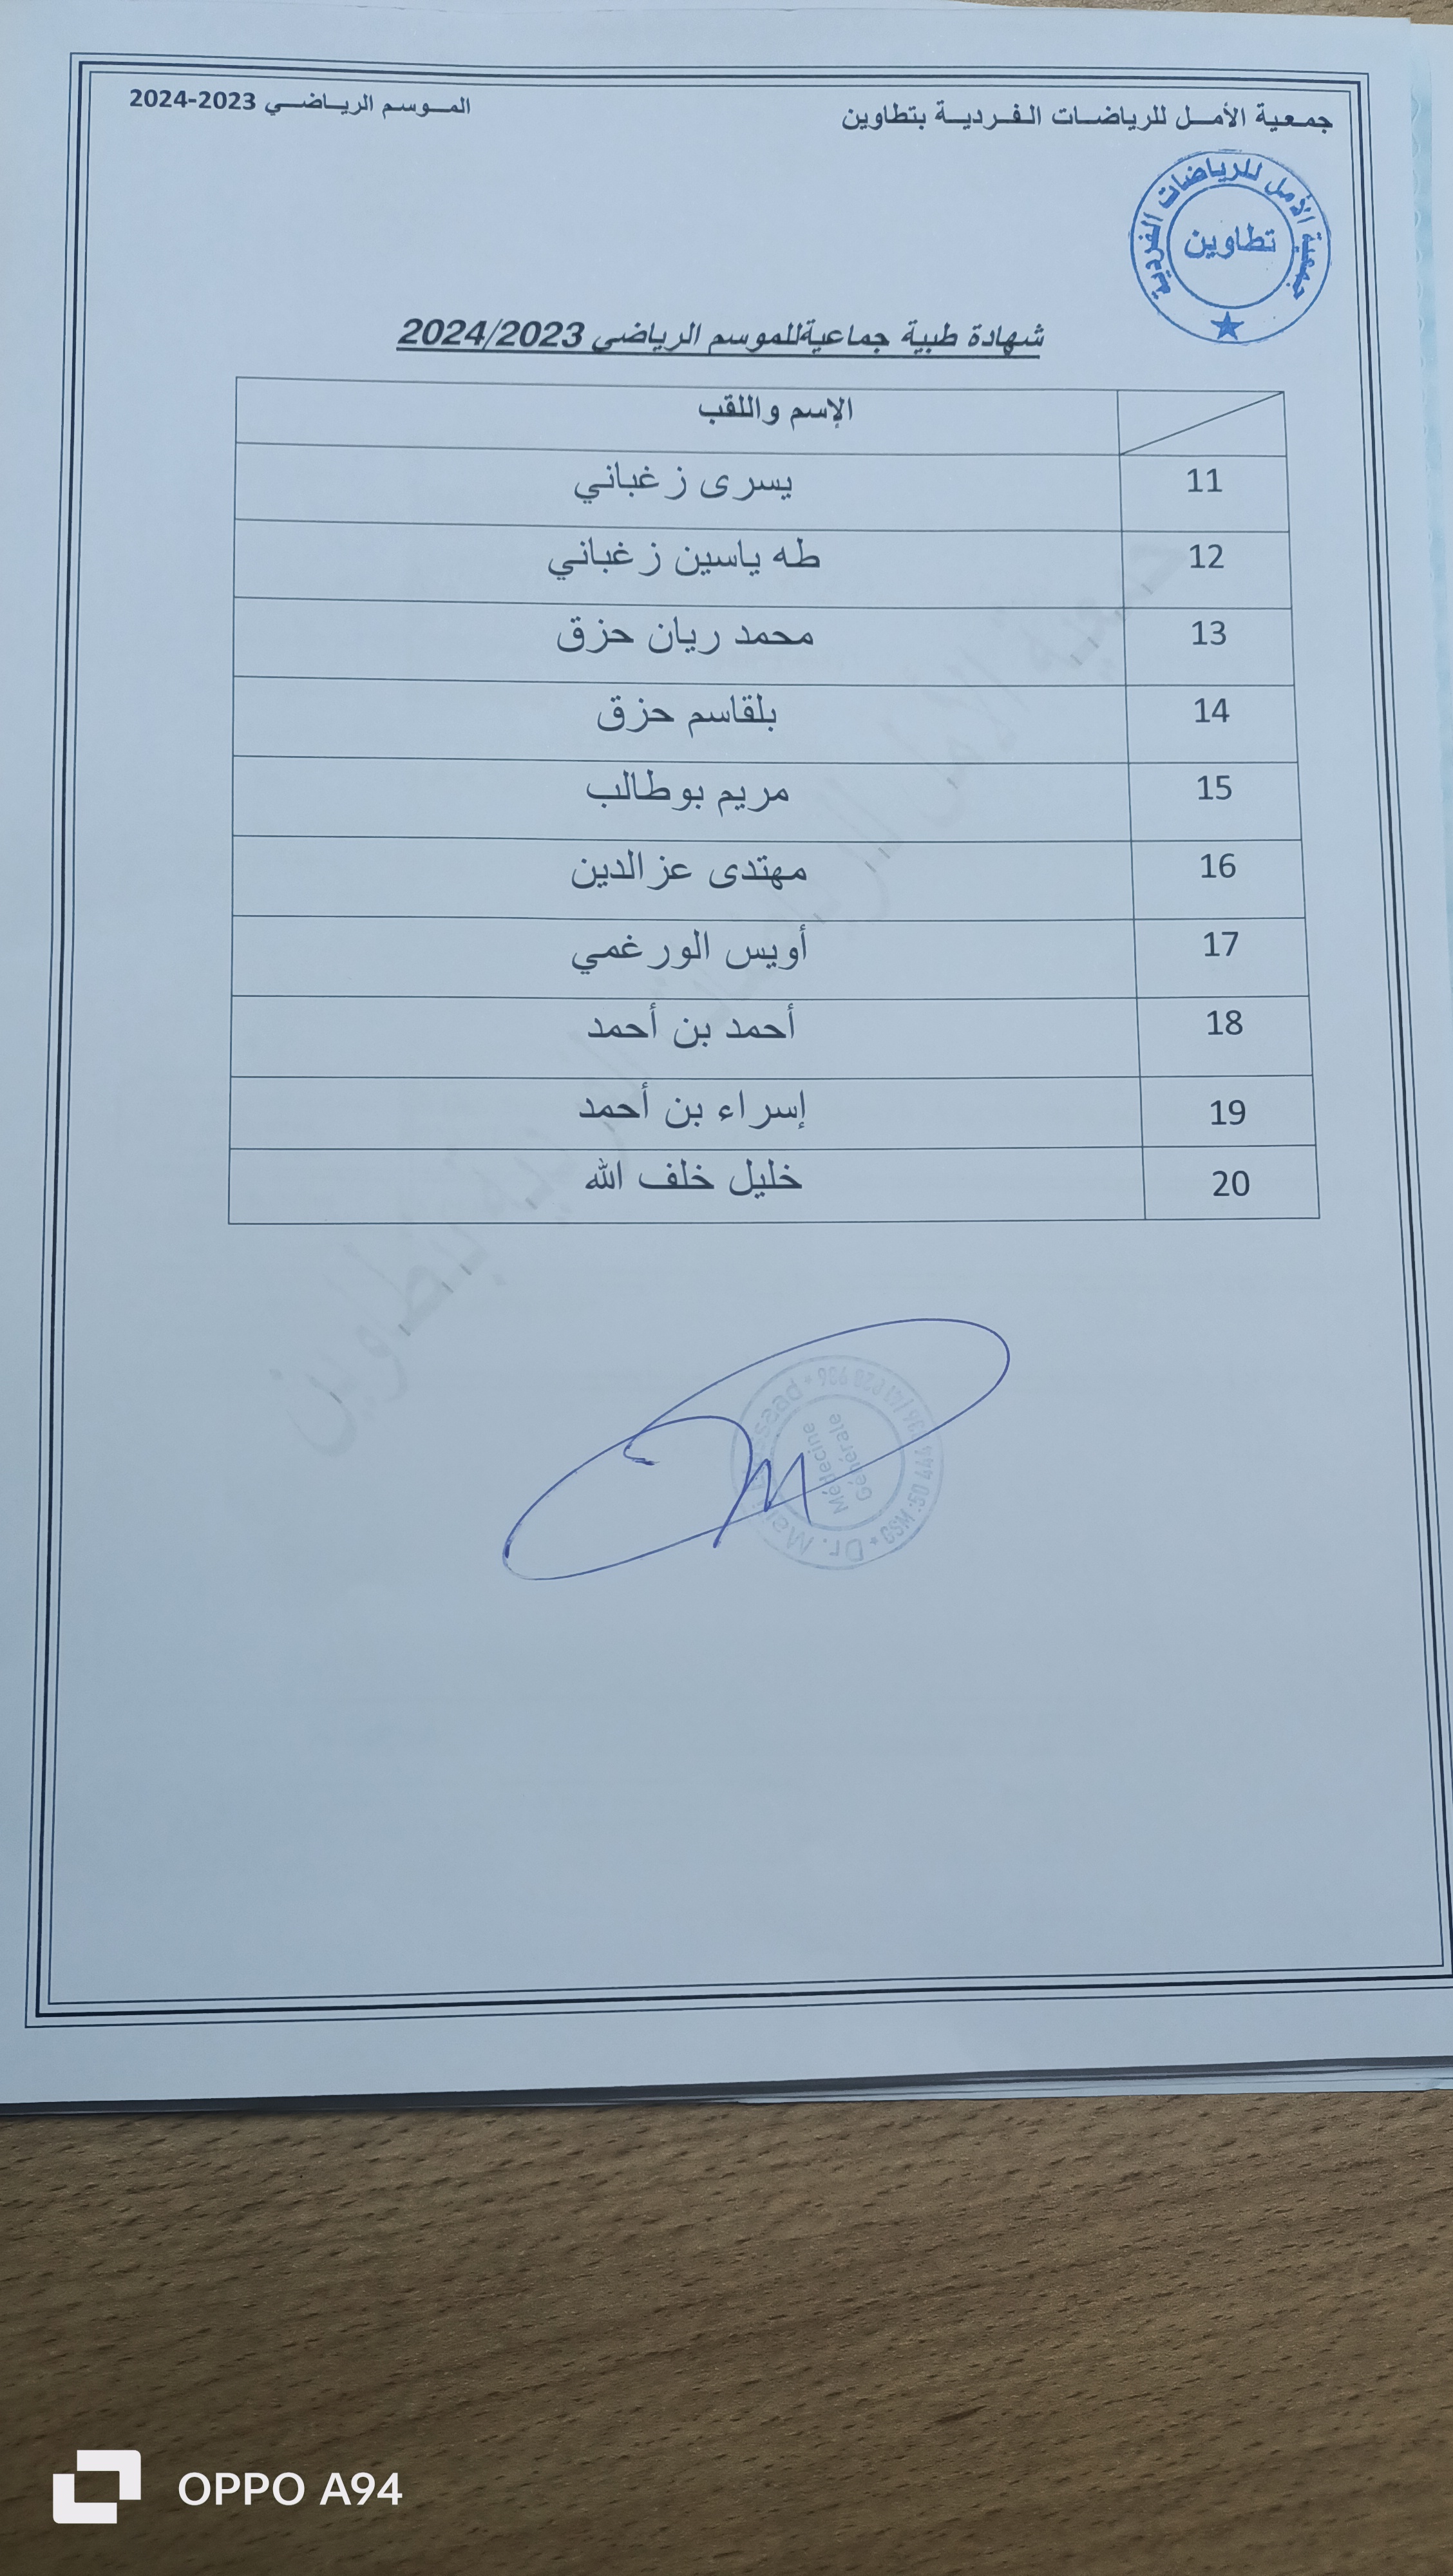 جمعية الأمل للرياضات الفردية بتطاوين
الموسم الرياضي 2023-2024
جمعية الأمل للرياضات الفردية
تطاوين
شهادة طبية جماعيةللموسم الرياضي 2024/2023
الإسم واللقب
11 يسرى زغباني
12 طه ياسين زغباني
13 محمد ريان حزق
14 بلقاسم حزق
15 مريم بوطالب
16 مهتدى عزالدين
17 أويس الورغمي
18 أحمد بن أحمد
19 إسراء بن أحمد
20 خليل خلف الله
جمعية الأمل للرياضات الفردية بتطاوين
Dr.
Médecine
Générale
GSM :50 444
OPPO A94